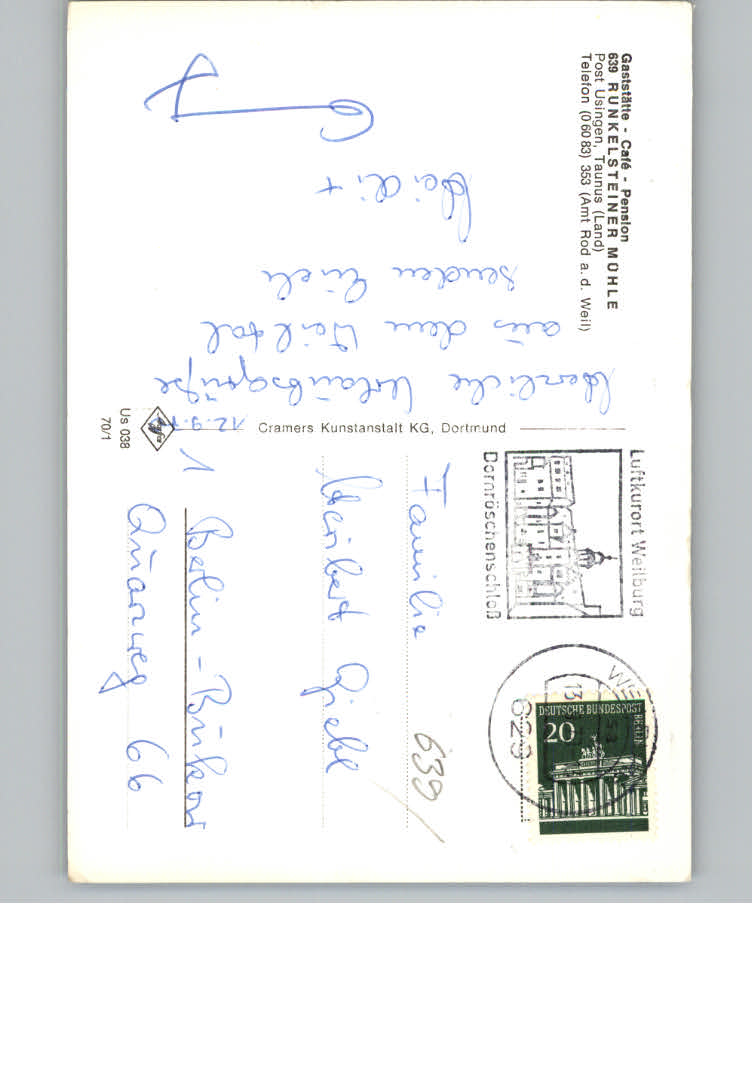 Gaststätte - Café - Pension
639 RUNKELSTEINER MÜHLE
Post Usingen, Taunus (Land)
Telefon (0 60 83) 353 (Amt Rod a. d. Weil)
Herzliche Urlaubsgrüße
aus dem Weiltal
senden Euch
Heidi +
12.9.
Cramers Kunstanstalt KG, Dortmund
Us 038
70/1
Luftkurort Weilburg
Dornröschenschloß
629
13
DEUTSCHE BUNDESPOST
BERLIN
20
Familie
Heribert Giebl
1 Berlin-Buckow
Quarzweg 66
639/